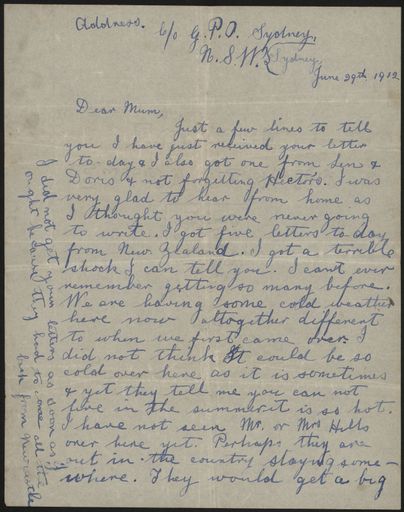 Address. C/o G.P.O. Sydney,
N.S.W. Sydney,
June 29th, 1912
Dear Mum,
Just a few lines to tell
you I have just received your letter
to-day & I also got one from Len &
Doris & not forgetting Hectors. I was
very glad to hear from home as
I thought you were never going
to write. I got five letters to day
from New Zealand. I got a terrible
shock I can tell you. I cant ever
remember getting so many before.
We are having some cold weather
here now altogether different
to when we first came over. I
did not think It could be so
cold over here as it is sometimes
& yet they tell me you can not
live in the summer it is so hot.
I have not seen Mr. or Mrs Hills
over here yet. Perhaps they are
out in the country staying some-
where. They would get a big
I did not get your letters as soon as I
ought because they had to come all the
back from Newcastle